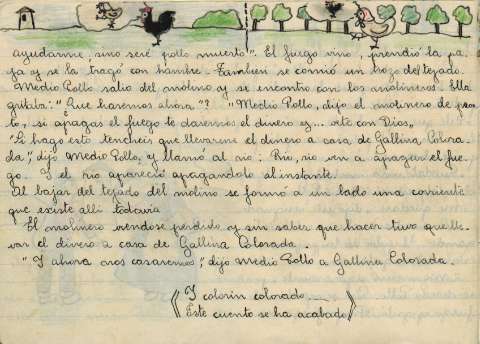 ayudarme, sino seré pollo muerto". El fuego vino, prendió la pa-
ja y se la tragó con hambre. Tambien se comió un trozo del tejado.
Medio Pollo salio del molino y se encontro con los molineros. Ella
gritaba: "Que haremos ahora"? "Medio Pollo, dijo el molinero de pron-
to, si apagas el fuego te daremos el dinero y... vete con Dios,,
"Si hago esto tencheis que llevarme el dinero a casa de Gallina Colora-
da," dijo Medio Pollo, y llamó al rio: Rio, rio ven a apagar el fue-
go. Y el rio apareció apagandolo al instante.
Al bajar del tejado del molino se formó a un lado una corriente
que existe alli todavia
El molinero viendose perdido y sin saber que hacer tuvo que lle-
var el dinero a casa de Gallina Colorada.
"Y ahora nos casaremos", dijo Medio Pollo a Gallina Colorada.
Y colorin colorado.....
Este cuento se ha acabado